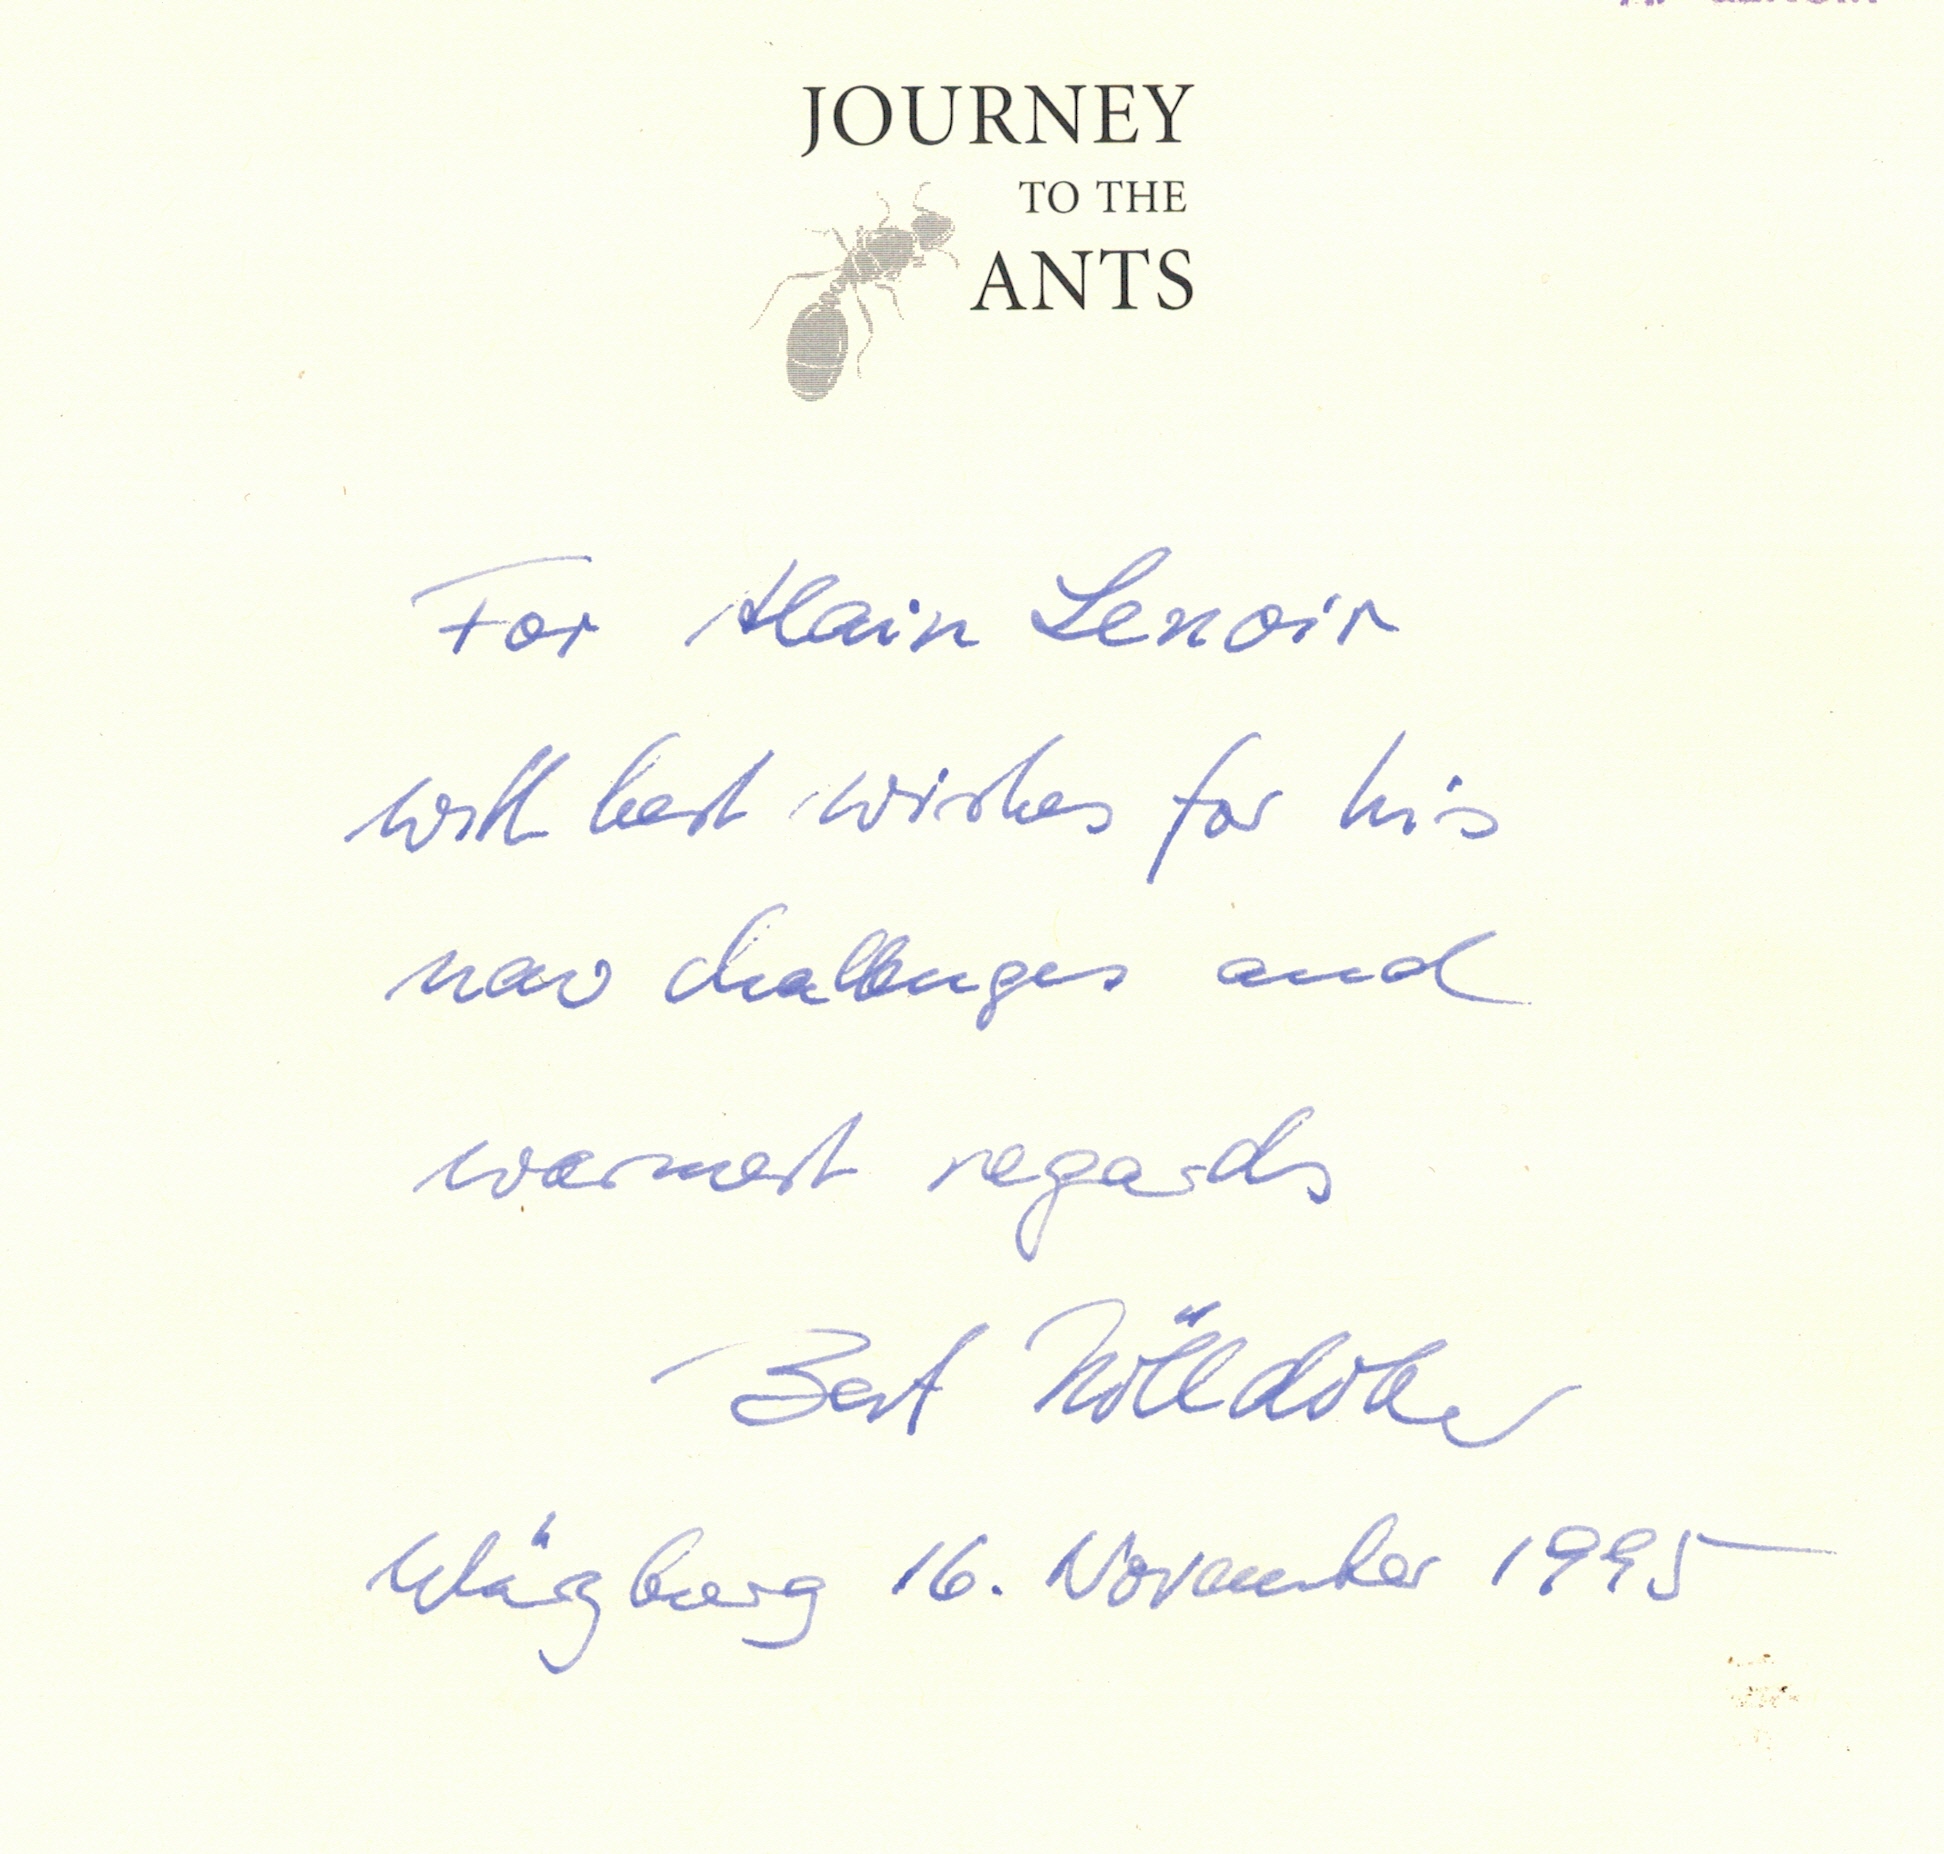 JOURNEY
TO THE
ANTS
For Alain Lenoir
with best wishes for his
new challenges and
warmest regards
Bert Hölldobler
Würzburg 16. November 1995